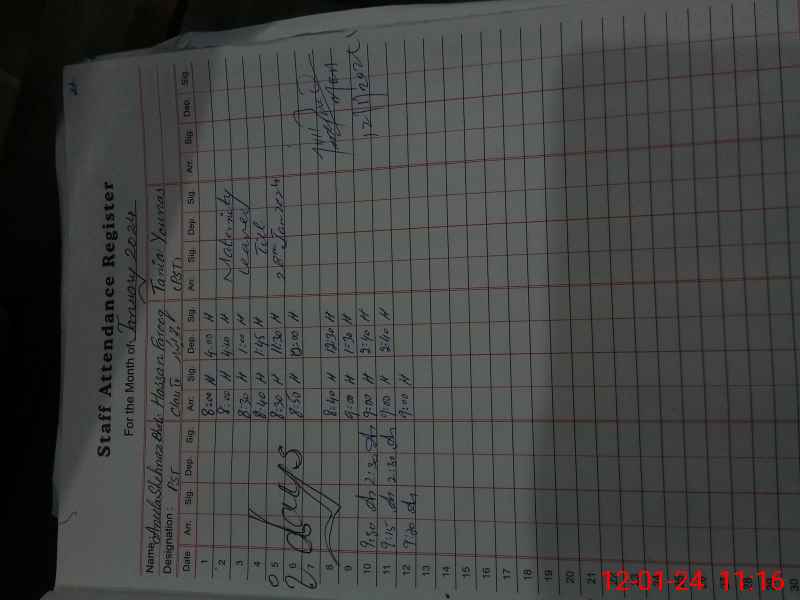 Staff Attendance Register
For the Month of: January 2024
Name: Aneela Shehnaz Hassan Farooq Tania Younas
Designation: PST (PST)
Date Arr. Sig. Dep. Sig. Arr. Sig. Dep. Sig. Arr. Sig. Dep. Sig. Arr. Sig. Dep. Sig.
1 8:00 H 4:00 H
2 8:00 H 4:00 H Maternity
3 8:30 H 1:00 H Leave
4 8:40 H 1:45 H Till
5 8:30 H 11:30 H 28th Jan 2024
6 days 8:50 H 12:00 H
7
8 8:40 H 12:30 H
9 9:00 H 1:30 H
10 9:30 2:30 9:00 H 2:40 H
11 9:15 2:30 9:00 H 2:40 H
12 9:20 9:00 H
13
14
15
16
17
18
19
20
21
22
23
24
30
12-01-24 11:16